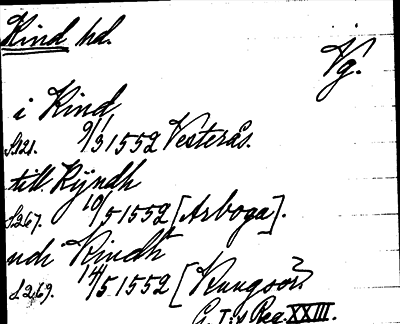 Kind hd.
Vg.
i Kind
S.121. 9/3 1552 Vesterås.
till Kijndh
S.267. 10/5 1552 [Arboga].
udi Kindh
S.269. 14/5 1552 [Kungsör?
G. I:s Reg. XXIII.